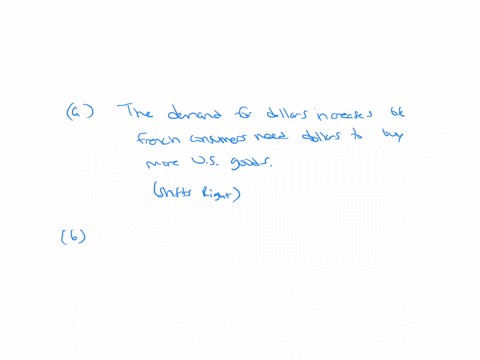 (a) The demand for dollars increases bc
French consumers need dollars to buy
more U.S. goods.
(Shifts Right)
(b)